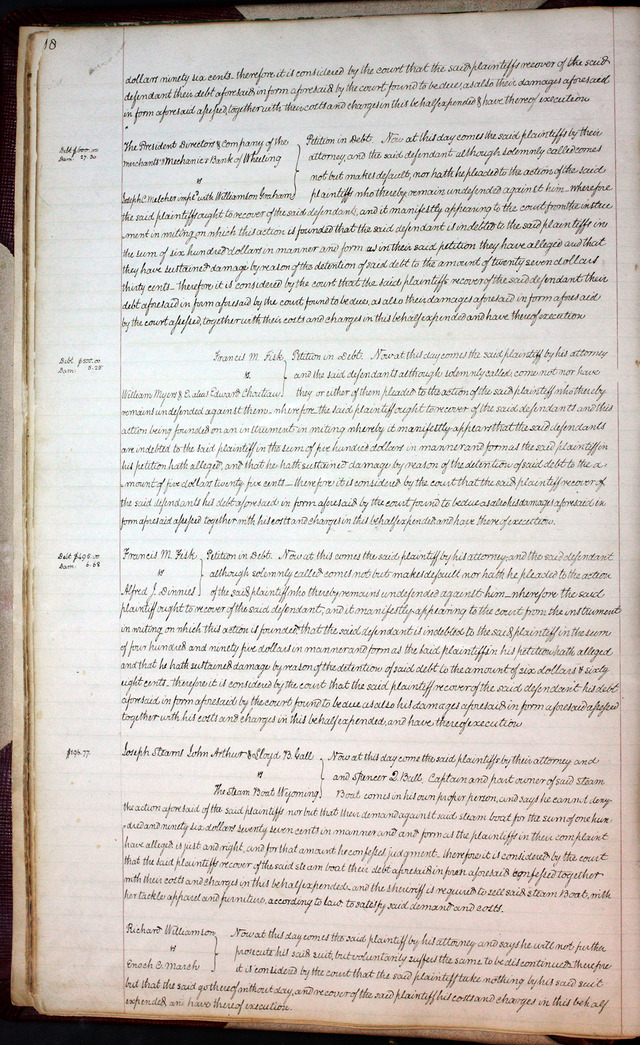 18
dollars ninety six cents. therefore it is considered by the court that the said plaintiffs recover of the said
defendant their debt aforesaid in form aforesaid by the court found to be due, as also their damages aforesaid
in form aforesaid assessed, together with their costs and charges in this behalf expended & have thereof execution
Debt $600.00
Dam: 27.30
The President Directors & Company of the
Merchants & Mechanics Bank of Wheeling
vs
Joseph C Melcher imp'd with Williamson Graham
Petition in Debt. Now at this day comes the said plaintiffs by their
attorney, and the said defendant although solemnly called comes
not but makes default, nor hath he pleaded to the action of the said
plaintiff who thereby remain undefended against him — wherefore
the said plaintiff ought to recover of the said defendant, and it manifestly appearing to the court from the instru
ment in writing on which this action is founded that the said defendant is indebted to the said plaintiffs in
the sum of six hundred dollars in manner and form as in their said petition they have alleged and that
they have sustained damage by reason of the detention of said debt to the amount of twenty seven dollars
thirty cents — therefore it is considered by the court that the said plaintiffs recover of the said defendant their
debt aforesaid in form aforesaid by the court found to be due, as also their damages aforesaid in form aforesaid
by the court assessed, together with their costs and charges in this behalf expended and have thereof execution
Debt $500.00
Dam: 5.25
Francis M. Fisk
vs
William Myers & E. alias Edward Chouteau
Petition in Debt. Now at this day comes the said plaintiff by his attorney
and the said defendants although solemnly called, come not nor have
they or either of them pleaded to the action of the said plaintiff who thereby
remains undefended against them — wherefore the said plaintiff ought to recover of the said defendants and this
action being founded on an instrument in writing whereby it manifestly appears that the said defendants
are indebted to the said plaintiff in the sum of five hundred dollars in manner and form as the said plaintiff in
his petition hath alleged, and that he hath sustained damage by reason of the detention of said debt to the a-
mount of five dollars twenty five cents — therefore it is considered by the court that the said plaintiff recover of
the said defendants his debt aforesaid in form aforesaid by the court found to be due as also his damages aforesaid in
form aforesaid assessed together with his costs and charges in this behalf expended and have thereof execution.
Debt $495.00
Dam: 6.68
Francis M. Fisk
vs
Alfred J. Dinnies
Petition in Debt. Now at this comes the said plaintiff by his attorney, and the said defendant
although solemnly called comes not but makes default nor hath he pleaded to the action
of the said plaintiff who thereby remains undefended against him — wherefore the said
plaintiff ought to recover of the said defendant, and it manifestly appearing to the court from the instrument
in writing on which this action is founded, that the said defendant is indebted to the said plaintiff in the sum
of four hundred and ninety five dollars in manner and form as the said plaintiff in his petition, hath alleged
and that he hath sustained damage by reason of the detention of said debt to the amount of six dollars & sixty
eight cents — therefore it is considered by the court that the said plaintiff recover of the said defendant his debt
aforesaid in form aforesaid by the court found to be due as also his damages aforesaid in form aforesaid assessed
together with his costs and charges in this behalf expended, and have thereof execution
$196.77
Joseph Stearns John Arthur & Lloyd B. Gall
vs
The Steam Boat Wyoming
Now at this day come the said plaintiffs by their attorney and
and Spencer J. Ball, Captain and part owner of said Steam
Boat comes in his own proper person, and says he cannot deny
the action aforesaid of the said plaintiffs nor but that their demand against said steam boat for the sum of one hun
-dred and ninety six dollars seventy seven cents in manner and and form as the plaintiffs in their complaint
have alleged is just and right, and for that amount he confesses judgment. therefore it is considered by the court
that the said plaintiffs recover of the said steam boat their debt aforesaid in form aforesaid confessed together
with their costs and charges in this behalf expended, and the sheriff is required to sell said Steam Boat, with
her tackle apparel and furniture, according to law to satisfy said demand and costs.
Richard Williamson
vs
Enoch C. March
Now at this day comes the said plaintiff by his attorney and says he will not further
prosecute his said suit, but voluntarily suffers the same to be discontinued therefore
it is considered by the court that the said plaintiff take nothing by his said suit
but that the said go thereof without day, and recover of the said plaintiff his costs and charges in this behalf
expended, and have thereof execution.